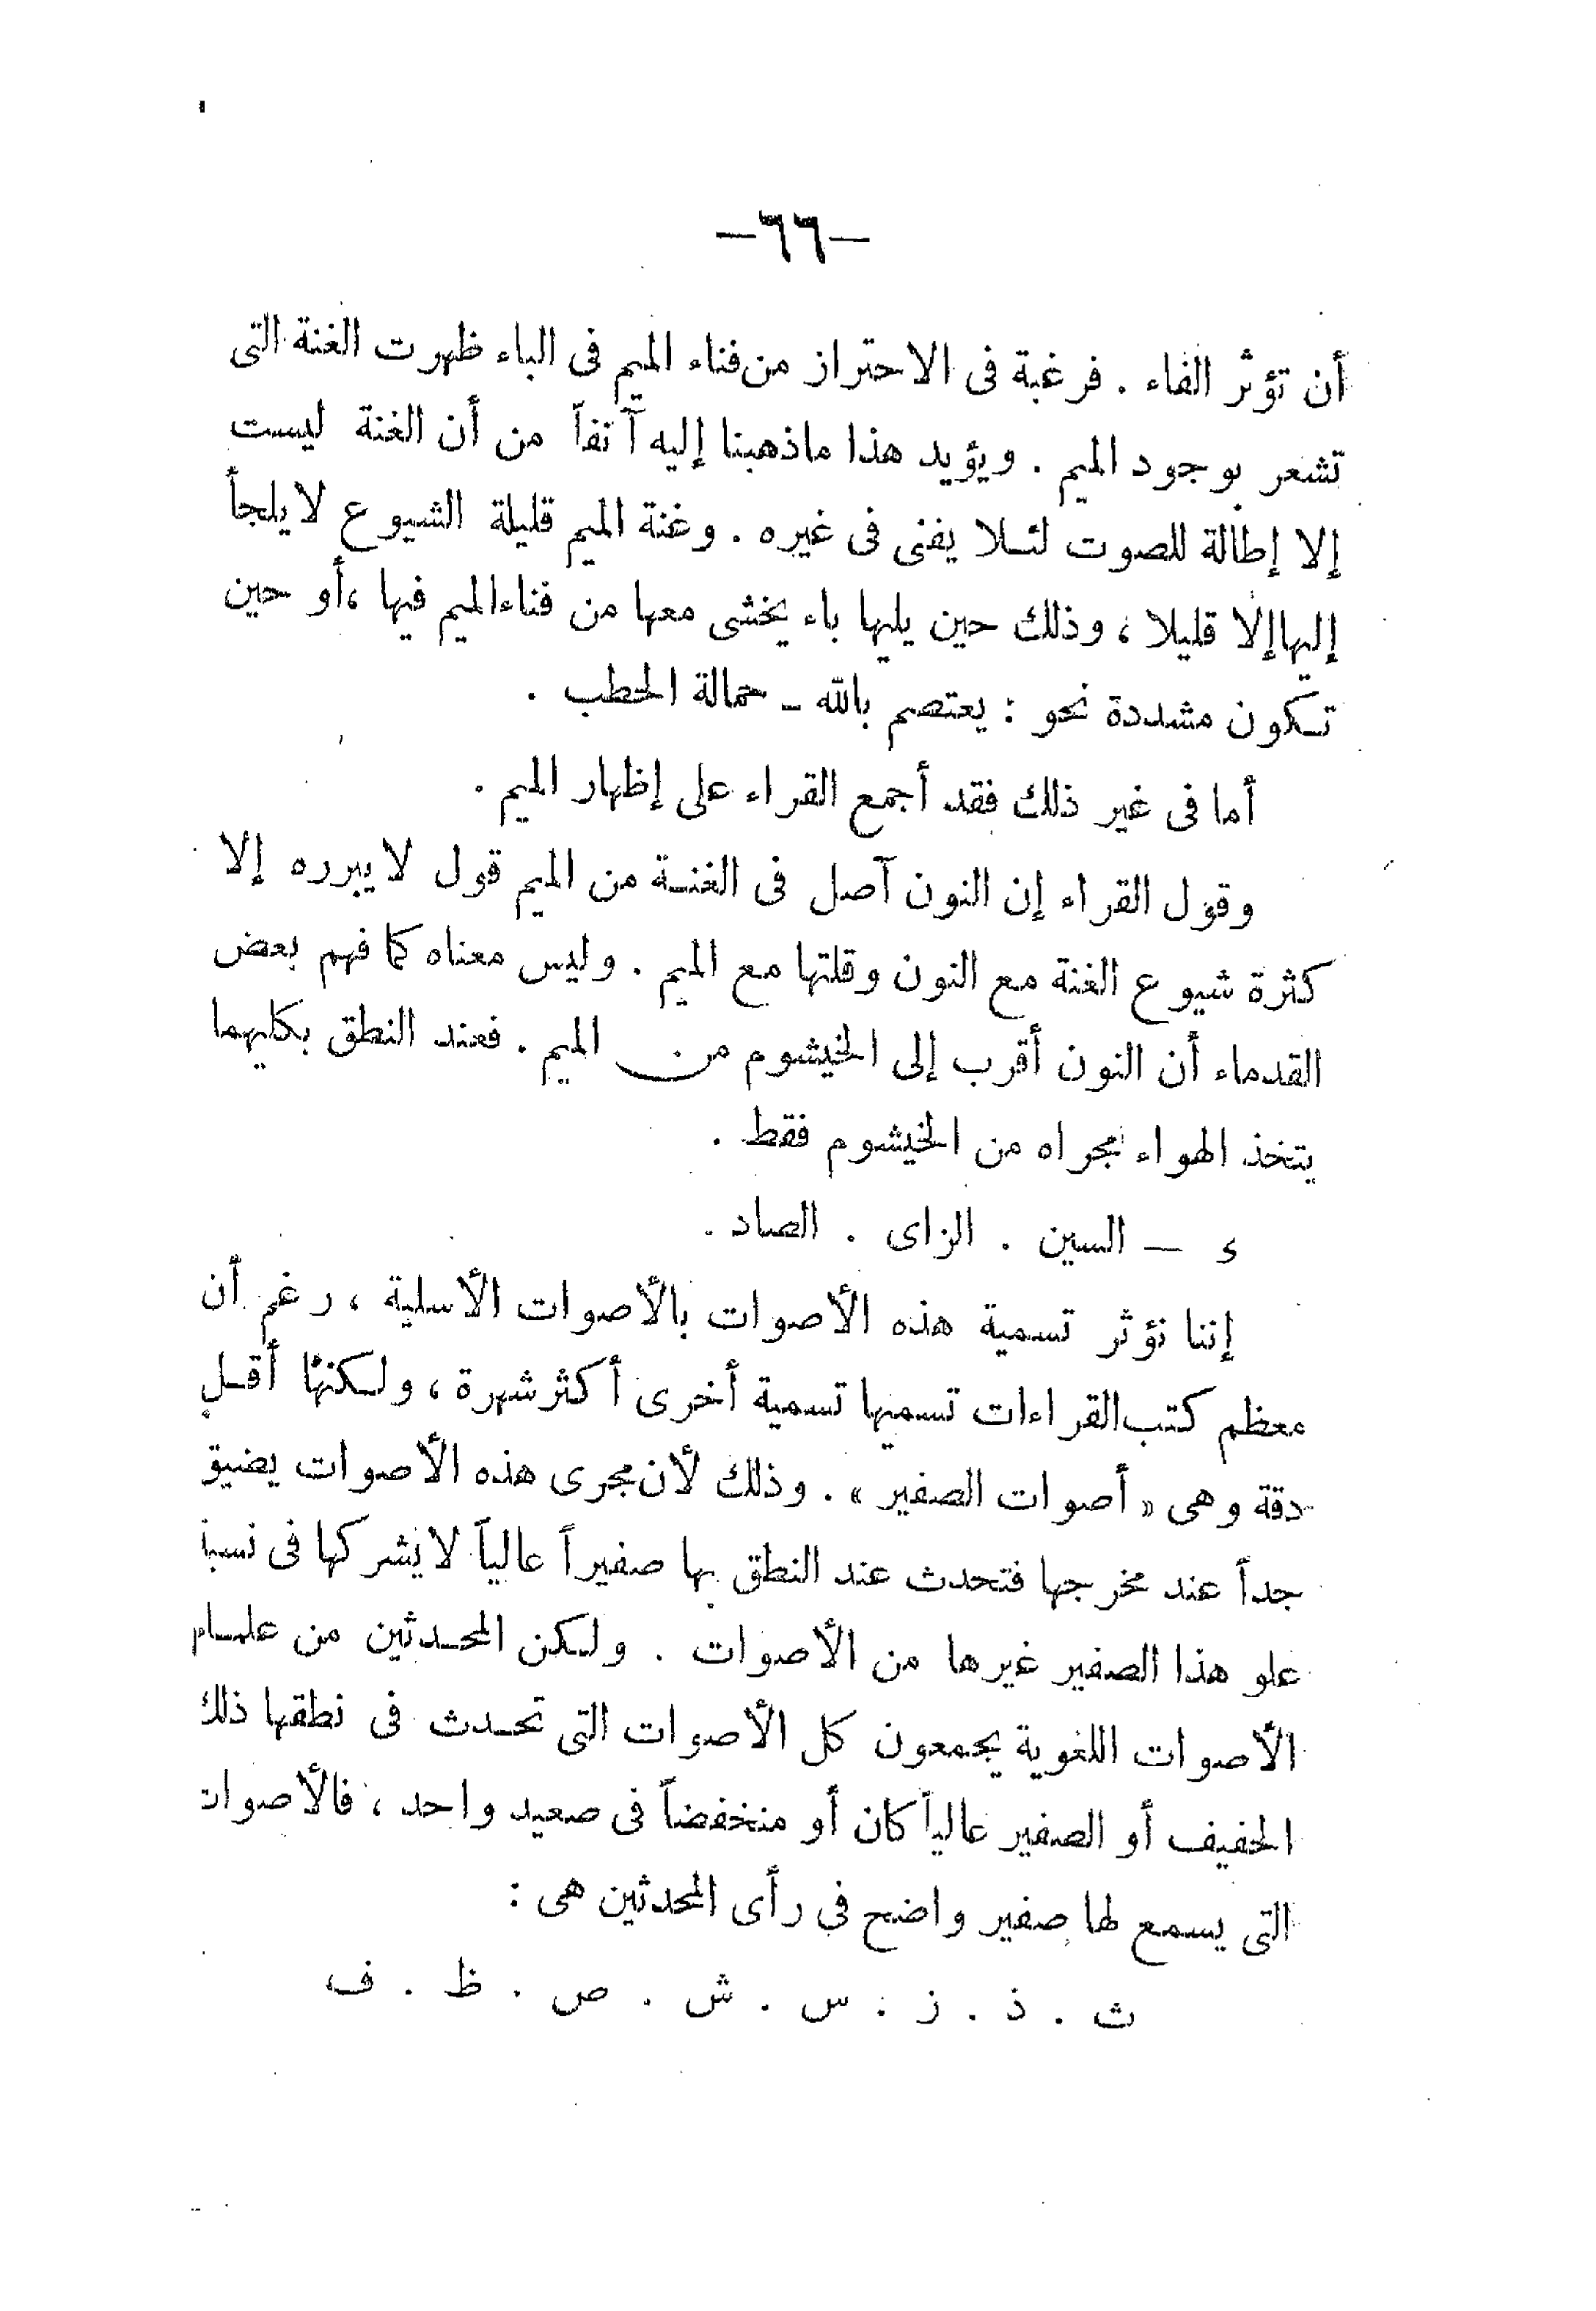 —٦٦—
أن تؤثر الفاء . فرغبة فى الاحتراز من فناء الميم فى الباء ظهرت الغنة التى
تشعر بوجود الميم . ويؤيد هذا ماذهبنا إليه آنفاً من أن الغنة ليست
إلا إطالة للصوت لئلا يفنى فى غيره . وغنة الميم قليلة الشيوع لا يلجأ
إليها إلا قليلا ، وذلك حين يليها باء يخشى معها من فناء الميم فيها ، أو حين
تكون مشددة نحو : يعتصم بالله ــ حمالة الحطب .
أما فى غير ذلك فقد أجمع القراء على إظهار الميم .
وقول القراء إن النون آصل فى الغنة من الميم قول لا يبرره إلا
كثرة شيوع الغنة مع النون وقلتها مع الميم . وليس معناه كما فهم بعض
القدماء أن النون أقرب إلى الخيشوم من الميم . فعند النطق بكليهما
يتخذ الهواء مجراه من الخيشوم فقط .
ء — السين . الزاى . الصاد .
إننا نؤثر تسمية هذه الأصوات بالأصوات الأسلية ، رغم أن
معظم كتب القراءات تسميها تسمية أخرى أكثر شهرة ، ولكنها أقل
دقة وهى « أصوات الصفير » . وذلك لأن مجرى هذه الأصوات يضيق
جداً عند مخرجها فتحدث عند النطق بها صفيراً عالياً لا يشركها فى نسبة
علو هذا الصفير غيرها من الأصوات . ولكن المحدثين من علماء
الأصوات اللغوية يجمعون كل الأصوات التى تحدث فى نطقها ذلك
الحفيف أو الصفير عالياً كان أو منخفضاً فى صعيد واحد ، فالأصوات
التى يسمع لها صفير واضح فى رأى المحدثين هى :
ث . ذ . ز . س . ش . ص . ظ . ف